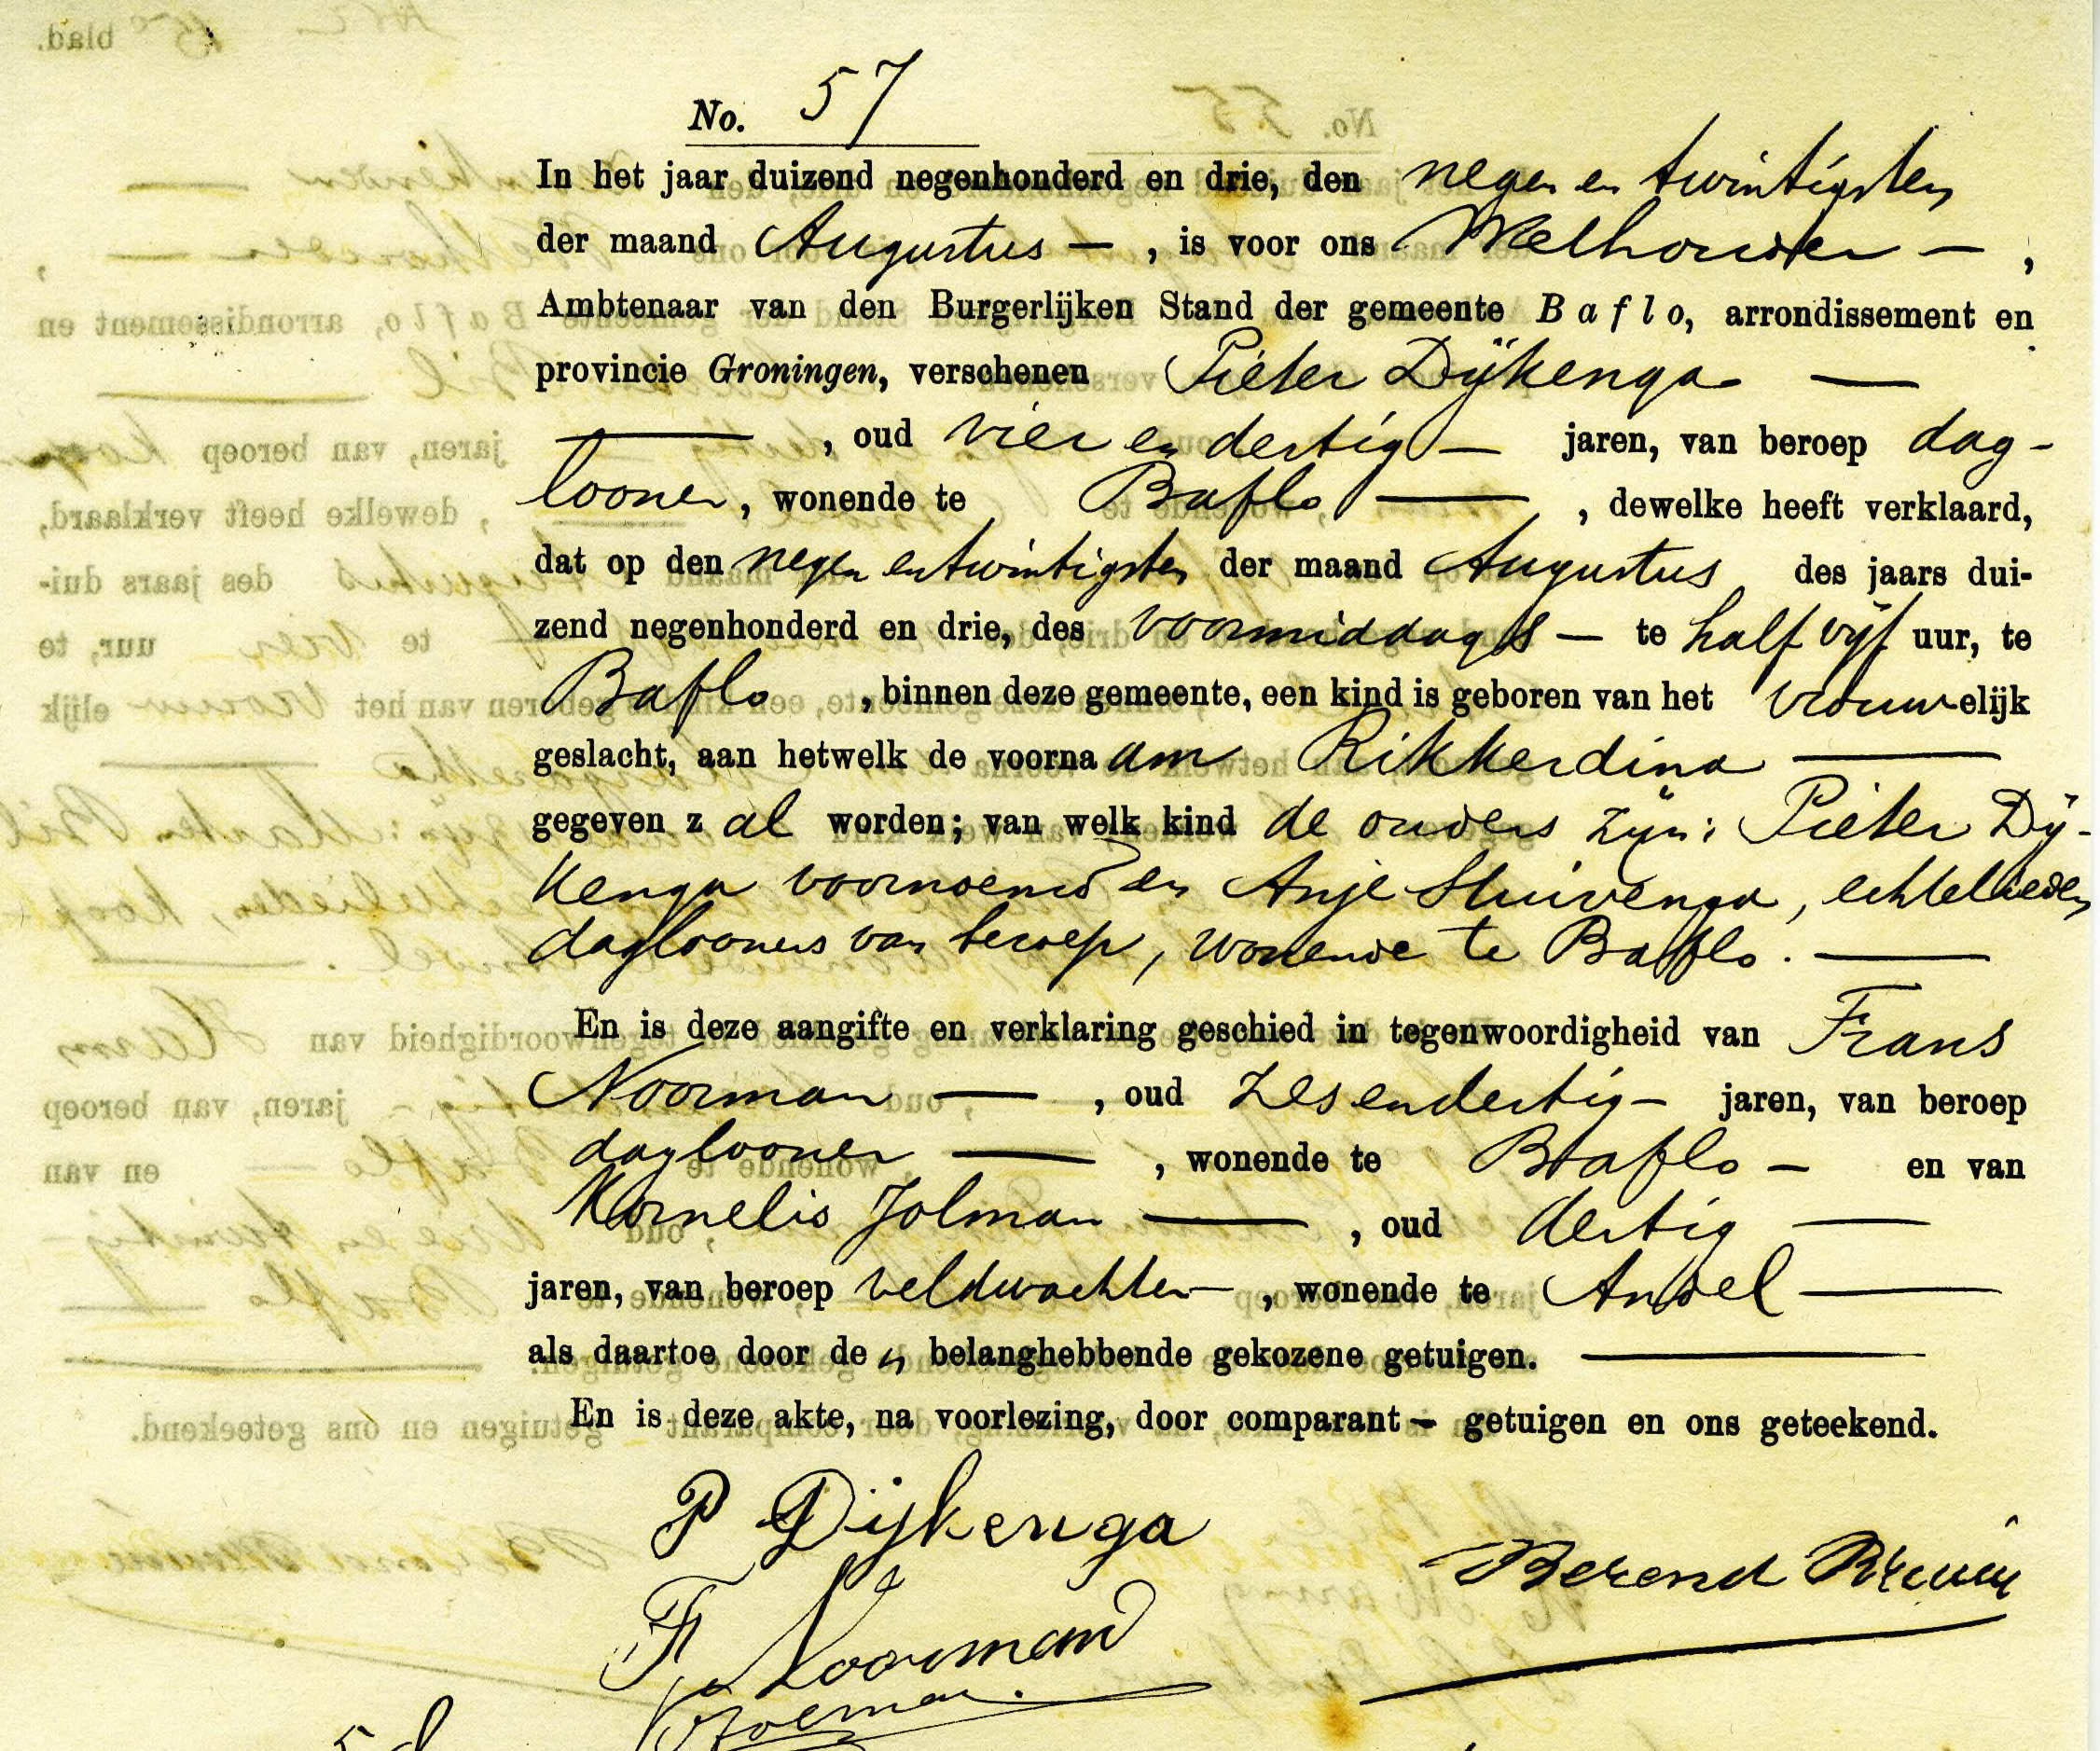 No. 57
In het jaar duizend negenhonderd en drie, den negen en twintigsten
der maand Augustus — , is voor ons Wethouder — ,
Ambtenaar van den Burgerlijken Stand der gemeente Baflo, arrondissement en
provincie Groningen, verschenen Pieter Dijkenga —
— , oud vier en dertig — jaren, van beroep dag-
looner, wonende te Baflo — , dewelke heeft verklaard,
dat op den negen en twintigsten der maand Augustus des jaars dui-
zend negenhonderd en drie, des voormiddags — te half vijf uur, te
Baflo , binnen deze gemeente, een kind is geboren van het vrouwelijk
geslacht, aan hetwelk de voornaam Rikkerdina —
gegeven zal worden; van welk kind de ouders zijn: Pieter Dij-
kenga voornoemd en Anje Sluivenga, echtelieden
daglooners van beroep, wonende te Baflo. —
En is deze aangifte en verklaring geschied in tegenwoordigheid van Frans
Noorman — , oud zes en dertig — jaren, van beroep
daglooner — , wonende te Baflo — en van
Kornelis Jolman — , oud dertig —
jaren, van beroep veldwachter — , wonende te Andel —
als daartoe door den belanghebbende gekozene getuigen. —
En is deze akte, na voorlezing, door comparant — getuigen en ons geteekend.
P Dijkenga
Berend
F Noorman